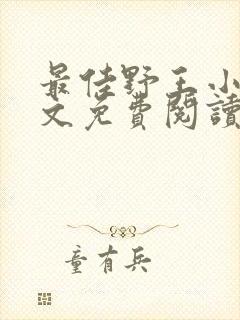 最佳野王小
文免費閱讀
童有兵